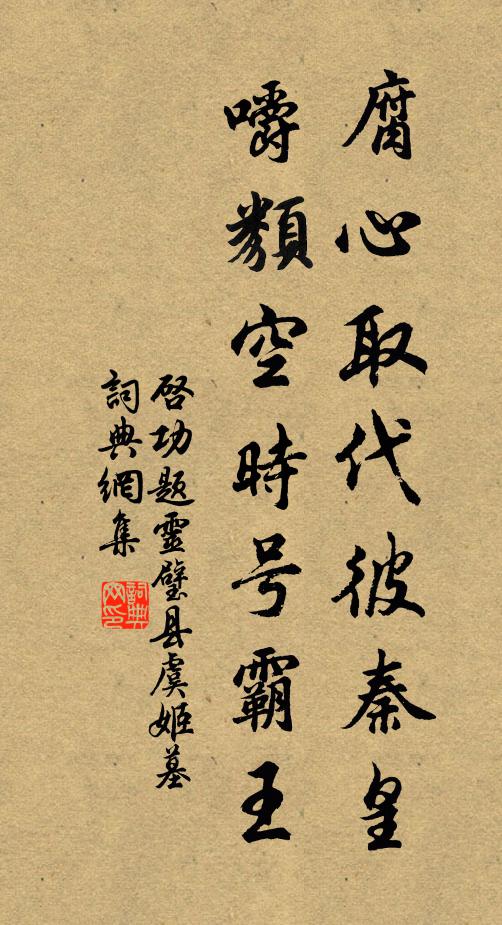 腐心取代彼秦皇
嚼類空時号霸王
啓功题靈璧县虞姬墓
詞典網集
詞典网印